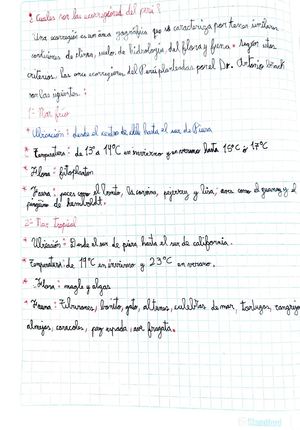 ¿ Cuales son las ecorregiones del perú ?
Una ecorregión es un área geográfica que se caracteriza por tener similares
condiciones de clima, suelos, de hidrología, del flora y fauna. Según estos
criterios. Las once ecorregiones del Perú planteadas por el Dr. Antonio Brack
son las siguientes. :
1- Mar frío
* Ubicación: desde el centro de chile hasta el sur de Piura
* Temperatura: de 13° a 14°C en invierno y en verano hasta 15°C y 17°C
* Flora: fitoplancton
* Fauna: peces como el bonito, la corvina, pejerrey y lisa, aves como el guanay y el
pingüino de humboldt.
2- Mar tropical
* Ubicación: Desde el sur de piura hasta el sur de california.
* Temperatura: de 19°C en invierno y 23°C en verano.
* Flora: mangle y algas
* Fauna: tiburones, bonito, mar, tortugas, cangrejo
almejas, caracoles, pez espada, ave fragata.
Standford